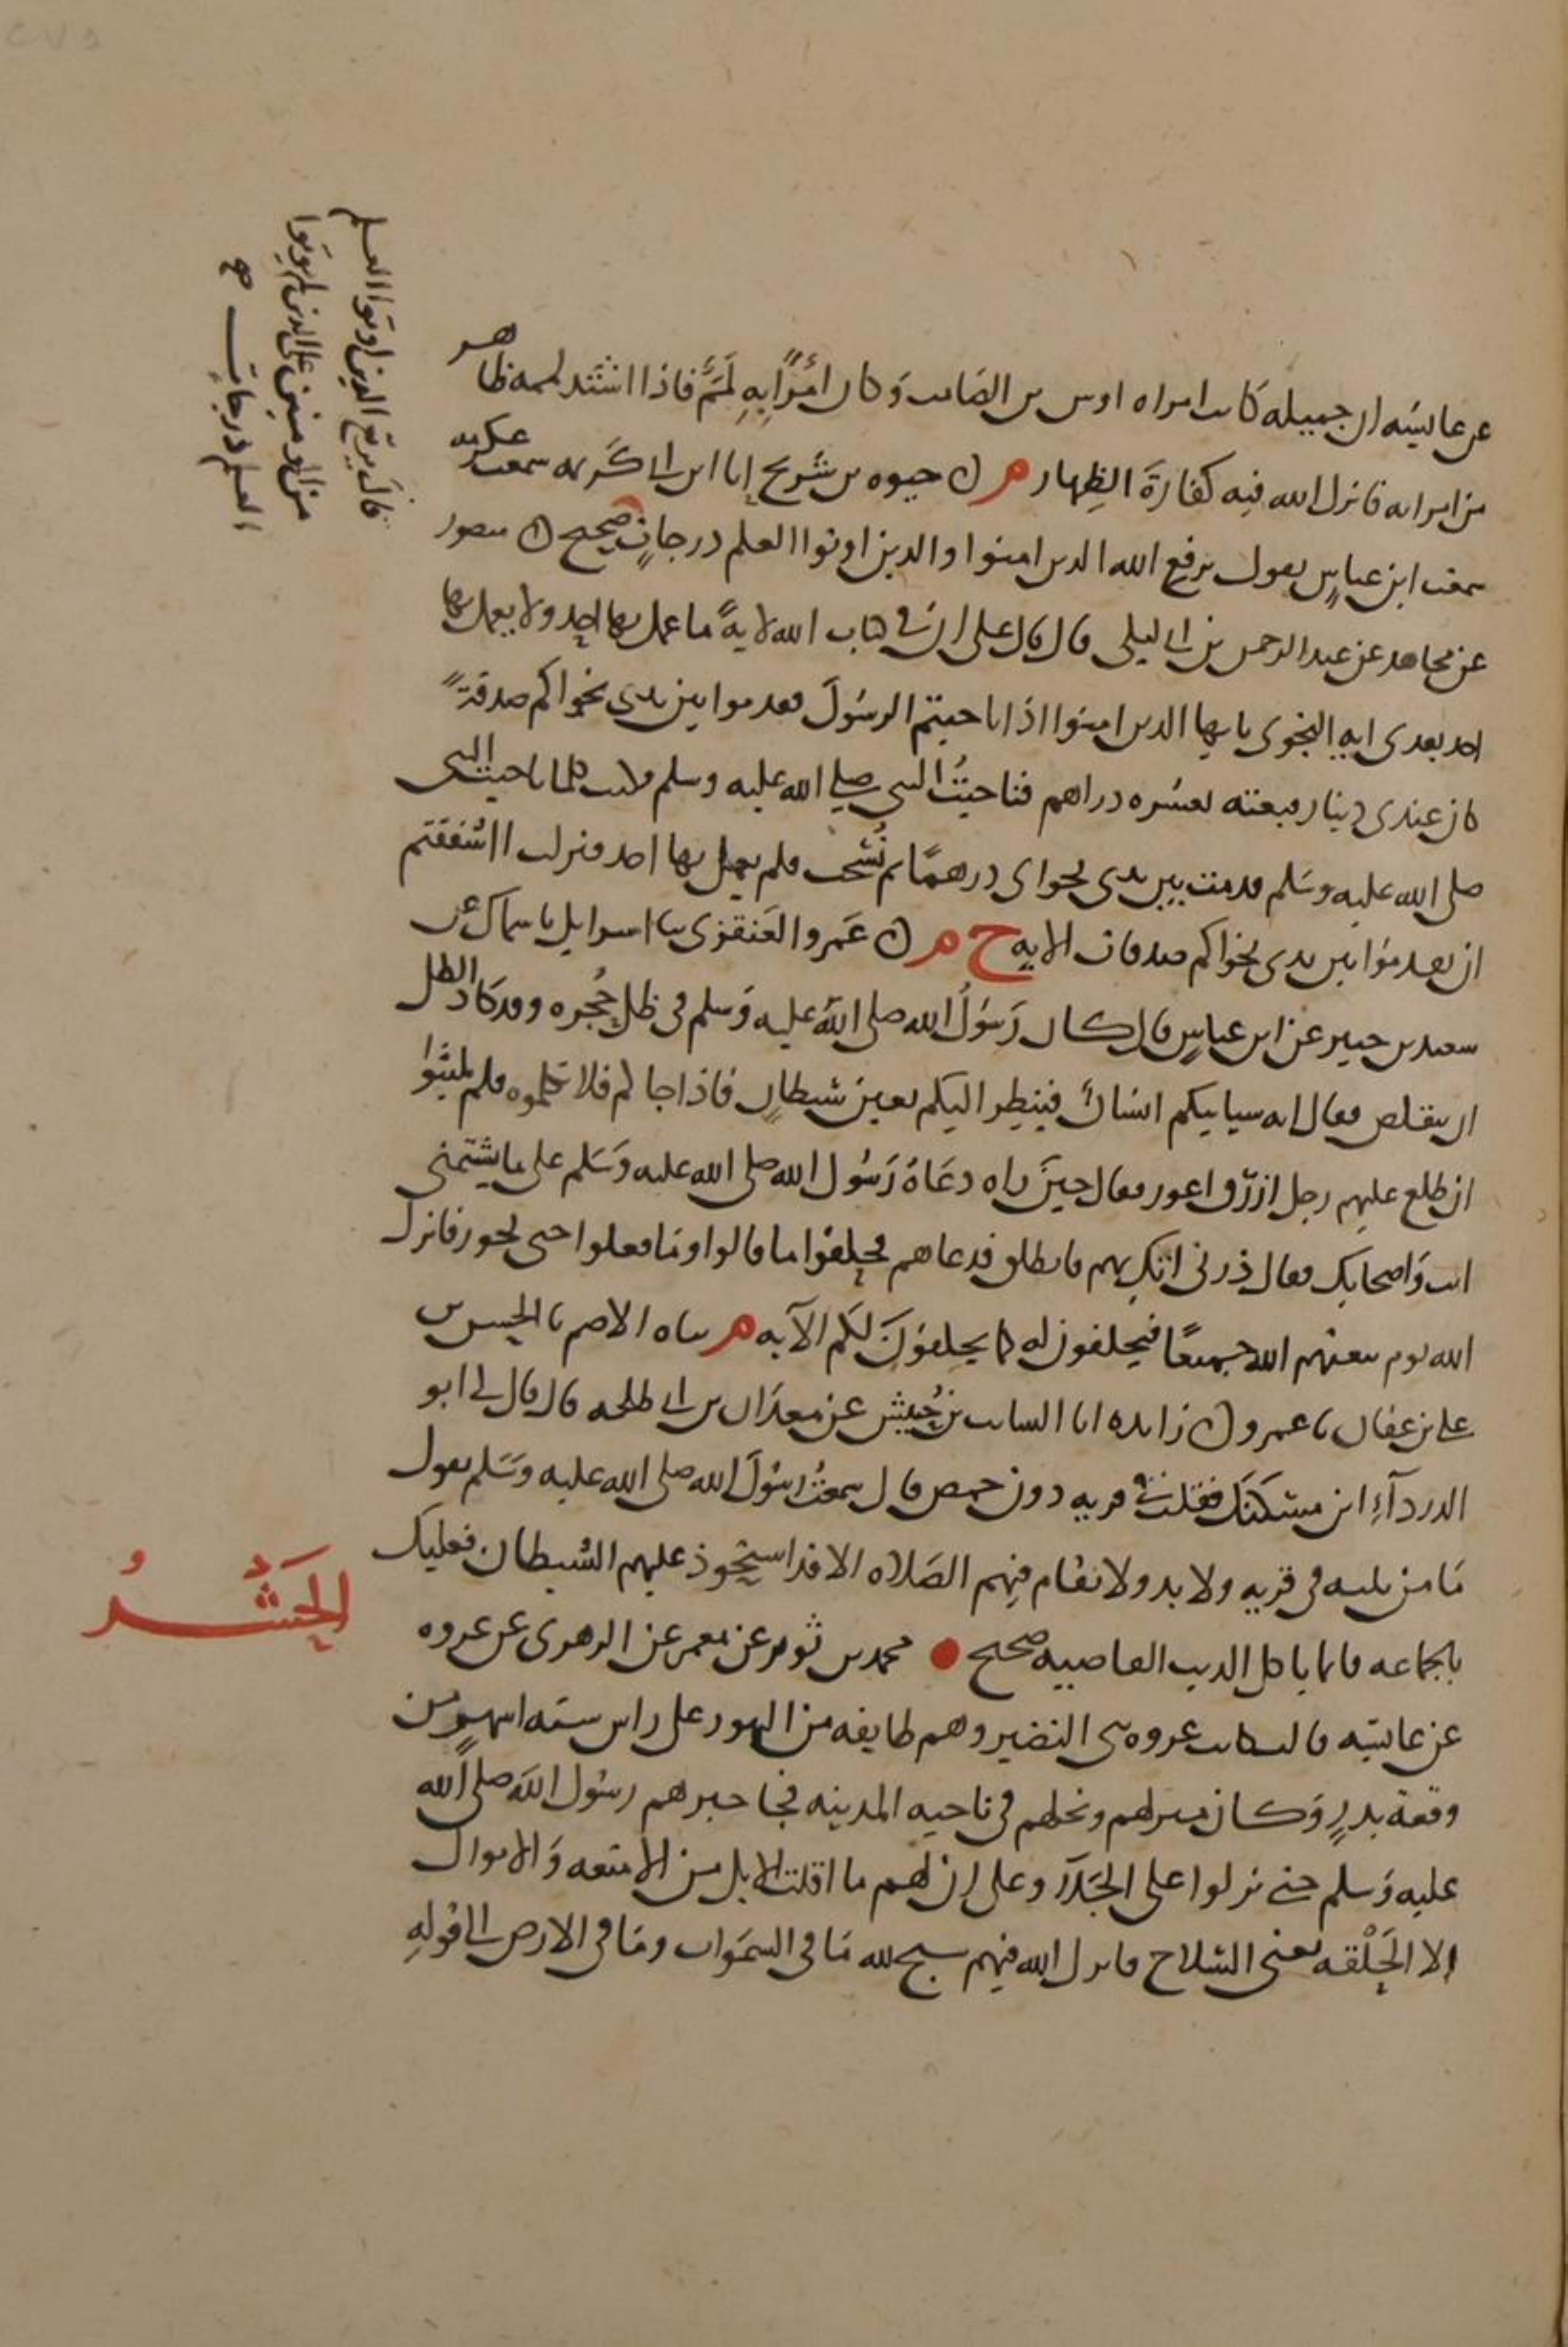 عن عائشه ان جميله كانت امراه اوس بن الصامت وكان امرًا به لمم فاذا اشتد لممه ظاهر
من امراته فانزل الله فيه كفارة الظهار م ن حيوه بن شريح انا ابن ابي كريمه سمعت عكرمه
سمعت ابن عباس يقول يرفع الله الذين امنوا والذين اوتوا العلم درجات صحيح ن منصور
عن مجاهد عن عبد الرحمن بن ابي ليلى قال قال علي ان في كتاب الله لاية ما عمل بها احد ولا يعمل بها
احد بعدى ايه النجوى يايها الذين امنوا اذا ناجيتم الرسول فقدموا بين يدى نجواكم صدقةً
كان عندى دينار فبعته بعشره دراهم فناجيتُ النبي صلي الله عليه وسلم فكنت كلما ناجيت النبي
صلى الله عليه وسلم قدمت بين يدى نجواى درهمًا ثم نُسخت فلم يعمل بها احد فنزلت ااشفقتم
ان تقدموا بين يدى نجواكم صدقات الايه خ م ن عمرو العنقزى ثنا اسرايل نا سماك عن
سعيد بن جبير عن ابن عباس قال كان رسول الله صلى الله عليه وسلم في ظل حُجره وقد كاد الظل
ان يتقلص فقال انه سياتيكم انسان فينظر اليكم بعين شيطان فاذا جاكم فلا تكلموه فلم يلبثوا
ان طلع عليهم رجل ازرق اعور فقال حين راه دعاه رسول الله صلى الله عليه وسلم على ما يشتمنى
انت واصحابك فقال ذرنى اتك بهم فانطلق فدعاهم فحلفوا ما قالوا وما فعلوا حتى تجوز فانزل
الله يوم يبعثهم الله جميعًا فيحلفون له كما يحلفون لكم الآيه م ثناه الاصم نا الحسن بن
علي بن عفان نا عمرو ن زايده انا السايب بن حُبيش عن معدان بن ابي طلحه قال قال لي ابو
الدردآءِ اين مسكنك فقلت في قريه دون حمص قال سمعتُ رسول الله صلى الله عليه وسلم يقول
ما من ثلثه في قريه ولا بدو لا تقام فيهم الصلاه الا قد استحوذ عليهم الشيطان فعليك
بالجماعه فانما ياكل الذيب القاصيه صحيح محمد بن ثور عن معمر عن الزهرى عن عروه
الحَشْرُ
عن عائشه قالت كانت غزوه بني النضير وهم طايفه من اليهود على راس سته اشهر من
وقعة بدرٍ وكان منزلهم ونخلهم في ناحيه المدينه فحاصرهم رسول الله صلى الله
عليه وسلم حتى نزلوا على الجلآ وعلى ان لهم ما اقلت الابل من الامتعه والاموال
الا الحَلْقه يعنى السلاح فانزل الله فيهم سبح لله ما في السموات وما في الارض الى قوله
قال يرفع الذين اوتوا العلم
من المومنين على الذين لم يوتوا
العلم درجات صح